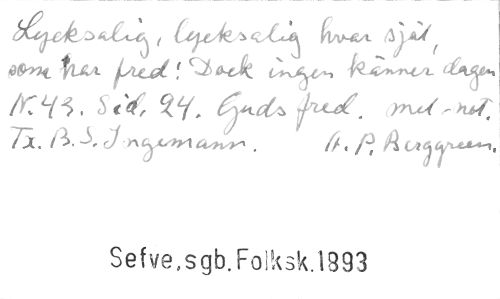 Lycksalig, lycksalig hvar själ,
som har fred! Dock ingen känner dagen
N. 43. Sid. 24. Guds fred. mel-not.
Tx. B. S. Ingemann. A. P. Berggreen.
Sefve, sgb. Folksk. 1893